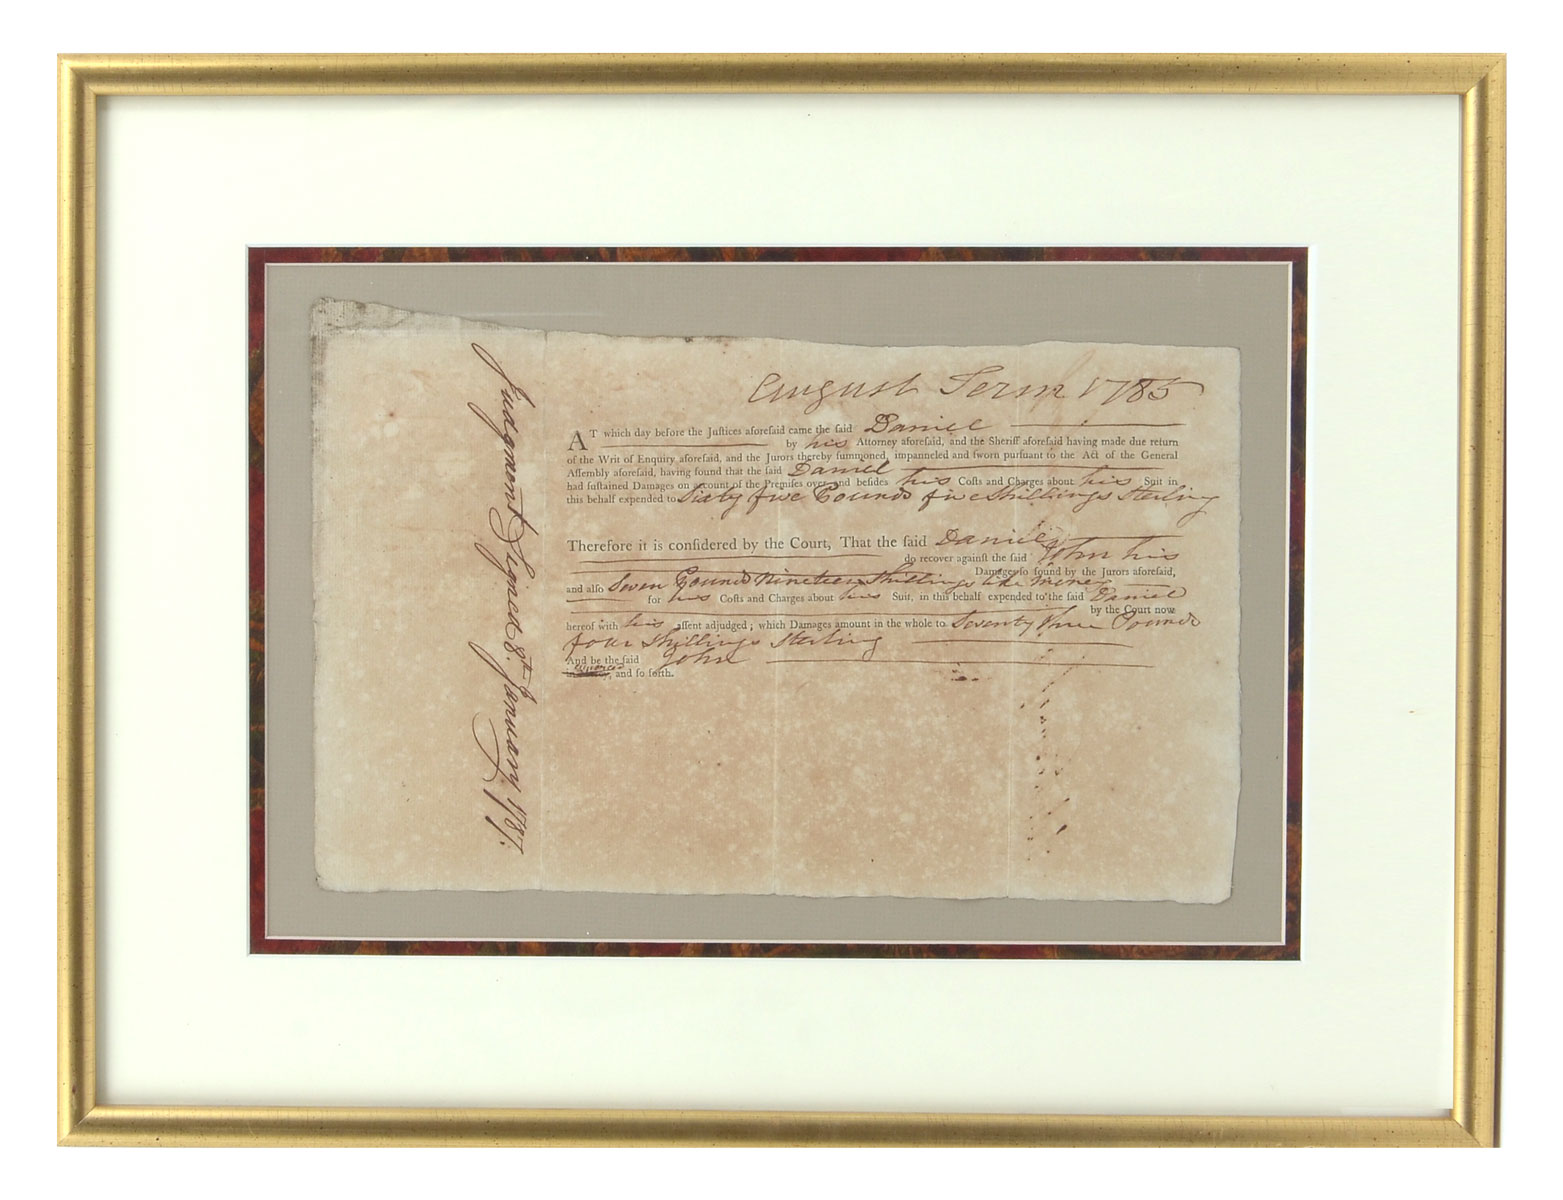 Judgment Signed 8th January 1787.
August Term 1785
AT which day before the Juſtices aforeſaid came the ſaid Daniel
by his Attorney aforeſaid, and the Sheriff aforeſaid having made due return
of the Writ of Enquiry aforeſaid, and the Jurors thereby ſummoned, impanneled and ſworn purſuant to the Act of the General
Aſſembly aforeſaid, having found that the ſaid Daniel
had ſuſtained Damages on account of the Premiſes over and beſides his Coſts and Charges about his Suit in
this behalf expended to Sixty five Pounds five Shillings Sterling
Therefore it is conſidered by the Court, That the ſaid Daniel
do recover againſt the ſaid John his
Damages ſo found by the Jurors aforeſaid,
and alſo Seven Pounds Nineteen Shillings like Money
for his Coſts and Charges about his Suit, in this behalf expended to the ſaid Daniel
by the Court now
hereof with his aſſent adjudged; which Damages amount in the whole to Seventy three Pounds
four Shillings Sterling
And be the ſaid John
, and ſo forth.